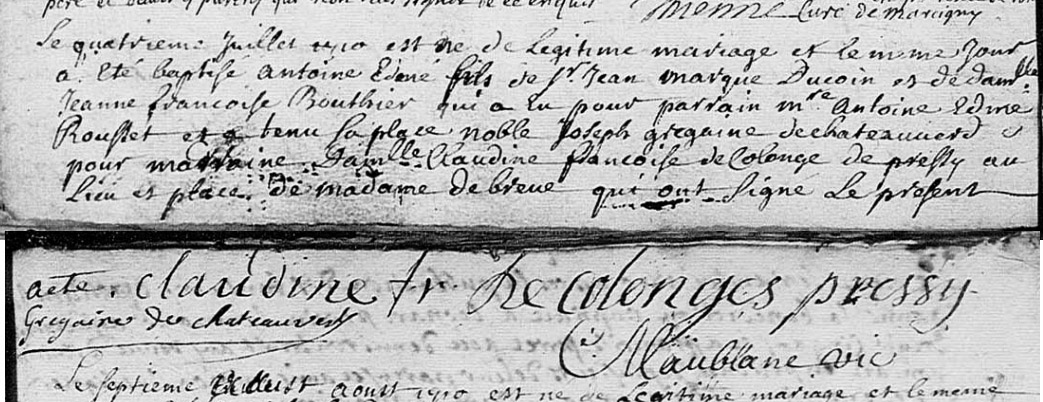 pere et
Curé de marcigny
Le quatrieme Juillet 1710 est né de Legitime mariage et le meme Jour
a Eté baptisé antoine Edmé fils de Sr. Jean marque Ducoin et de damlle
Jeanne francoise Bouthier qui a Eu pour parrain mre Antoine Edme
Rousset et a tenu Sa place noble Joseph gregaine de chateauverd &
pour marraine Damlle Claudine francoise de Colonge de pressy au
Lieu et place de madame de breue qui ont Signé Le present
acte. claudine fr. De colonges pressy
Gregaine de chateauvert
Maublanc vic
Le Septieme aoust 1710 est né de Legitime mariage et le meme